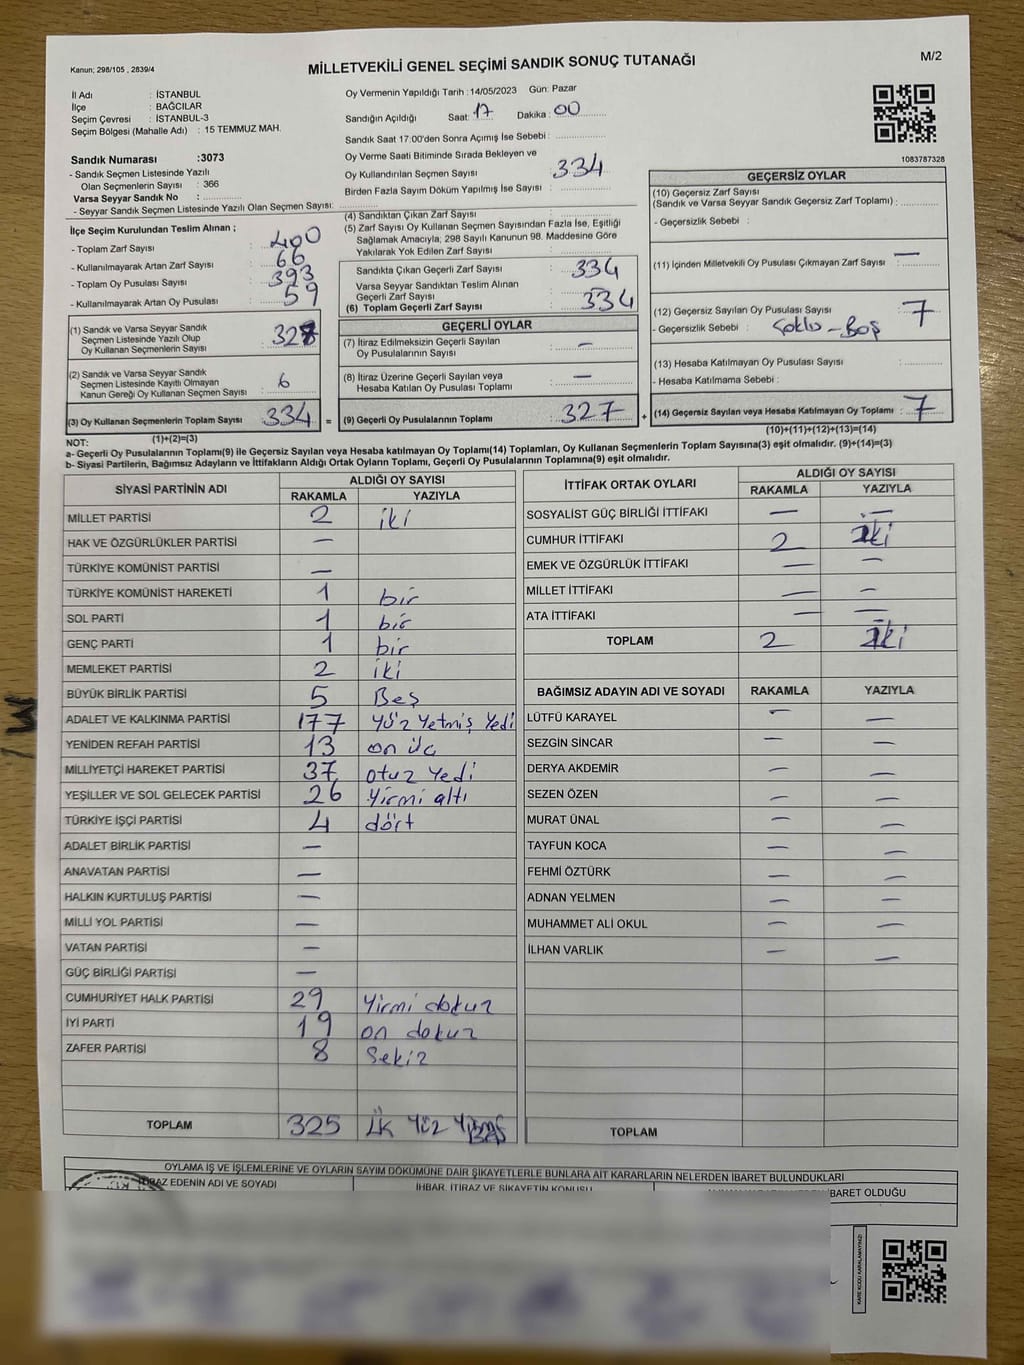 Kanun; 298/105 , 2839/4
MİLLETVEKİLİ GENEL SEÇİMİ SANDIK SONUÇ TUTANAĞI
M/2
İl Adı : İSTANBUL
İlçe : BAĞCILAR
Seçim Çevresi : İSTANBUL-3
Seçim Bölgesi (Mahalle Adı) : 15 TEMMUZ MAH.
Sandık Numarası :3073
- Sandık Seçmen Listesinde Yazılı
Olan Seçmenlerin Sayısı : 366
Varsa Seyyar Sandık No :
- Seyyar Sandık Seçmen Listesinde Yazılı Olan Seçmen Sayısı:
Oy Vermenin Yapıldığı Tarih :14/05/2023 Gün: Pazar
Sandığın Açıldığı Saat: 17 Dakika: 00
Sandık Saat 17:00'den Sonra Açımış İse Sebebi :
Oy Verme Saati Bitiminde Sırada Bekleyen ve
Oy Kullandırılan Seçmen Sayısı : 334
Birden Fazla Sayım Döküm Yapılmış İse Sayısı :
1083787328
İlçe Seçim Kurulundan Teslim Alınan ;
- Toplam Zarf Sayısı : 400
- Kullanılmayarak Artan Zarf Sayısı : 66
- Toplam Oy Pusulası Sayısı : 393
- Kullanılmayarak Artan Oy Pusulası : 59
(1) Sandık ve Varsa Seyyar Sandık
Seçmen Listesinde Yazılı Olup
Oy Kullanan Seçmenlerin Sayısı : 328
(2) Sandık ve Varsa Seyyar Sandık
Seçmen Listesinde Kayıtlı Olmayan
Kanun Gereği Oy Kullanan Seçmen Sayısı : 6
(3) Oy Kullanan Seçmenlerin Toplam Sayısı : 334
(1)+(2)=(3)
(4) Sandıktan Çıkan Zarf Sayısı :
(5) Zarf Sayısı Oy Kullanan Seçmen Sayısından Fazla İse, Eşitliği
Sağlamak Amacıyla; 298 Sayılı Kanunun 98. Maddesine Göre
Yakılarak Yok Edilen Zarf Sayısı :
Sandıkta Çıkan Geçerli Zarf Sayısı : 334
Varsa Seyyar Sandıktan Teslim Alınan
Geçerli Zarf Sayısı :
(6) Toplam Geçerli Zarf Sayısı : 334
GEÇERLİ OYLAR
(7) İtiraz Edilmeksizin Geçerli Sayılan
Oy Pusulalarının Sayısı : —
(8) İtiraz Üzerine Geçerli Sayılan veya
Hesaba Katılan Oy Pusulası Toplamı : —
= (9) Geçerli Oy Pusulalarının Toplamı : 327
GEÇERSİZ OYLAR
(10) Geçersiz Zarf Sayısı
(Sandık ve Varsa Seyyar Sandık Geçersiz Zarf Toplamı) :
- Geçersizlik Sebebi :
(11) İçinden Milletvekili Oy Pusulası Çıkmayan Zarf Sayısı : —
(12) Geçersiz Sayılan Oy Pusulası Sayısı : 7
- Geçersizlik Sebebi : Çoklu - Boş
(13) Hesaba Katılmayan Oy Pusulası Sayısı :
- Hesaba Katılmama Sebebi :
+ (14) Geçersiz Sayılan veya Hesaba Katılmayan Oy Toplamı : 7
(10)+(11)+(12)+(13)=(14)
NOT:
a- Geçerli Oy Pusulalarının Toplamı(9) ile Geçersiz Sayılan veya Hesaba katılmayan Oy Toplamı(14) Toplamları, Oy Kullanan Seçmenlerin Toplam Sayısına(3) eşit olmalıdır. (9)+(14)=(3)
b- Siyasi Partilerin, Bağımsız Adayların ve İttifakların Aldığı Ortak Oyların Toplamı, Geçerli Oy Pusulalarının Toplamına(9) eşit olmalıdır.
SİYASİ PARTİNİN ADI ALDIĞI OY SAYISI
RAKAMLA YAZIYLA
MİLLET PARTİSİ 2 iki
HAK VE ÖZGÜRLÜKLER PARTİSİ —
TÜRKİYE KOMÜNİST PARTİSİ —
TÜRKİYE KOMÜNİST HAREKETİ 1 bir
SOL PARTİ 1 bir
GENÇ PARTİ 1 bir
MEMLEKET PARTİSİ 2 iki
BÜYÜK BİRLİK PARTİSİ 5 Beş
ADALET VE KALKINMA PARTİSİ 177 Yüz Yetmiş Yedi
YENİDEN REFAH PARTİSİ 13 on üç
MİLLİYETÇİ HAREKET PARTİSİ 37 otuz Yedi
YEŞİLLER VE SOL GELECEK PARTİSİ 26 Yirmi altı
TÜRKİYE İŞÇİ PARTİSİ 4 dört
ADALET BİRLİK PARTİSİ —
ANAVATAN PARTİSİ —
HALKIN KURTULUŞ PARTİSİ —
MİLLİ YOL PARTİSİ —
VATAN PARTİSİ —
GÜÇ BİRLİĞİ PARTİSİ —
CUMHURİYET HALK PARTİSİ 29 Yirmi dokuz
İYİ PARTİ 19 on dokuz
ZAFER PARTİSİ 8 Sekiz
TOPLAM 325 Yüz
İTTİFAK ORTAK OYLARI ALDIĞI OY SAYISI
RAKAMLA YAZIYLA
SOSYALİST GÜÇ BİRLİĞİ İTTİFAKI — —
CUMHUR İTTİFAKI 2 iki
EMEK VE ÖZGÜRLÜK İTTİFAKI — —
MİLLET İTTİFAKI — —
ATA İTTİFAKI — —
TOPLAM 2 iki
BAĞIMSIZ ADAYIN ADI VE SOYADI RAKAMLA YAZIYLA
LÜTFÜ KARAYEL — —
SEZGİN SİNCAR — —
DERYA AKDEMİR — —
SEZEN ÖZEN — —
MURAT ÜNAL — —
TAYFUN KOCA — —
FEHMİ ÖZTÜRK — —
ADNAN YELMEN — —
MUHAMMET ALİ OKUL — —
İLHAN VARLIK — —
TOPLAM
OYLAMA İŞ VE İŞLEMLERİNE VE OYLARIN SAYIM DÖKÜMÜNE DAİR ŞİKAYETLERLE BUNLARA AİT KARARLARIN NELERDEN İBARET BULUNDUKLARI
İTİRAZ EDENİN ADI VE SOYADI
İHBAR, İTİRAZ VE ŞİKAYETİN KONUSU
İBARET OLDUĞU
KARE KODU KARALAMAYINIZ!